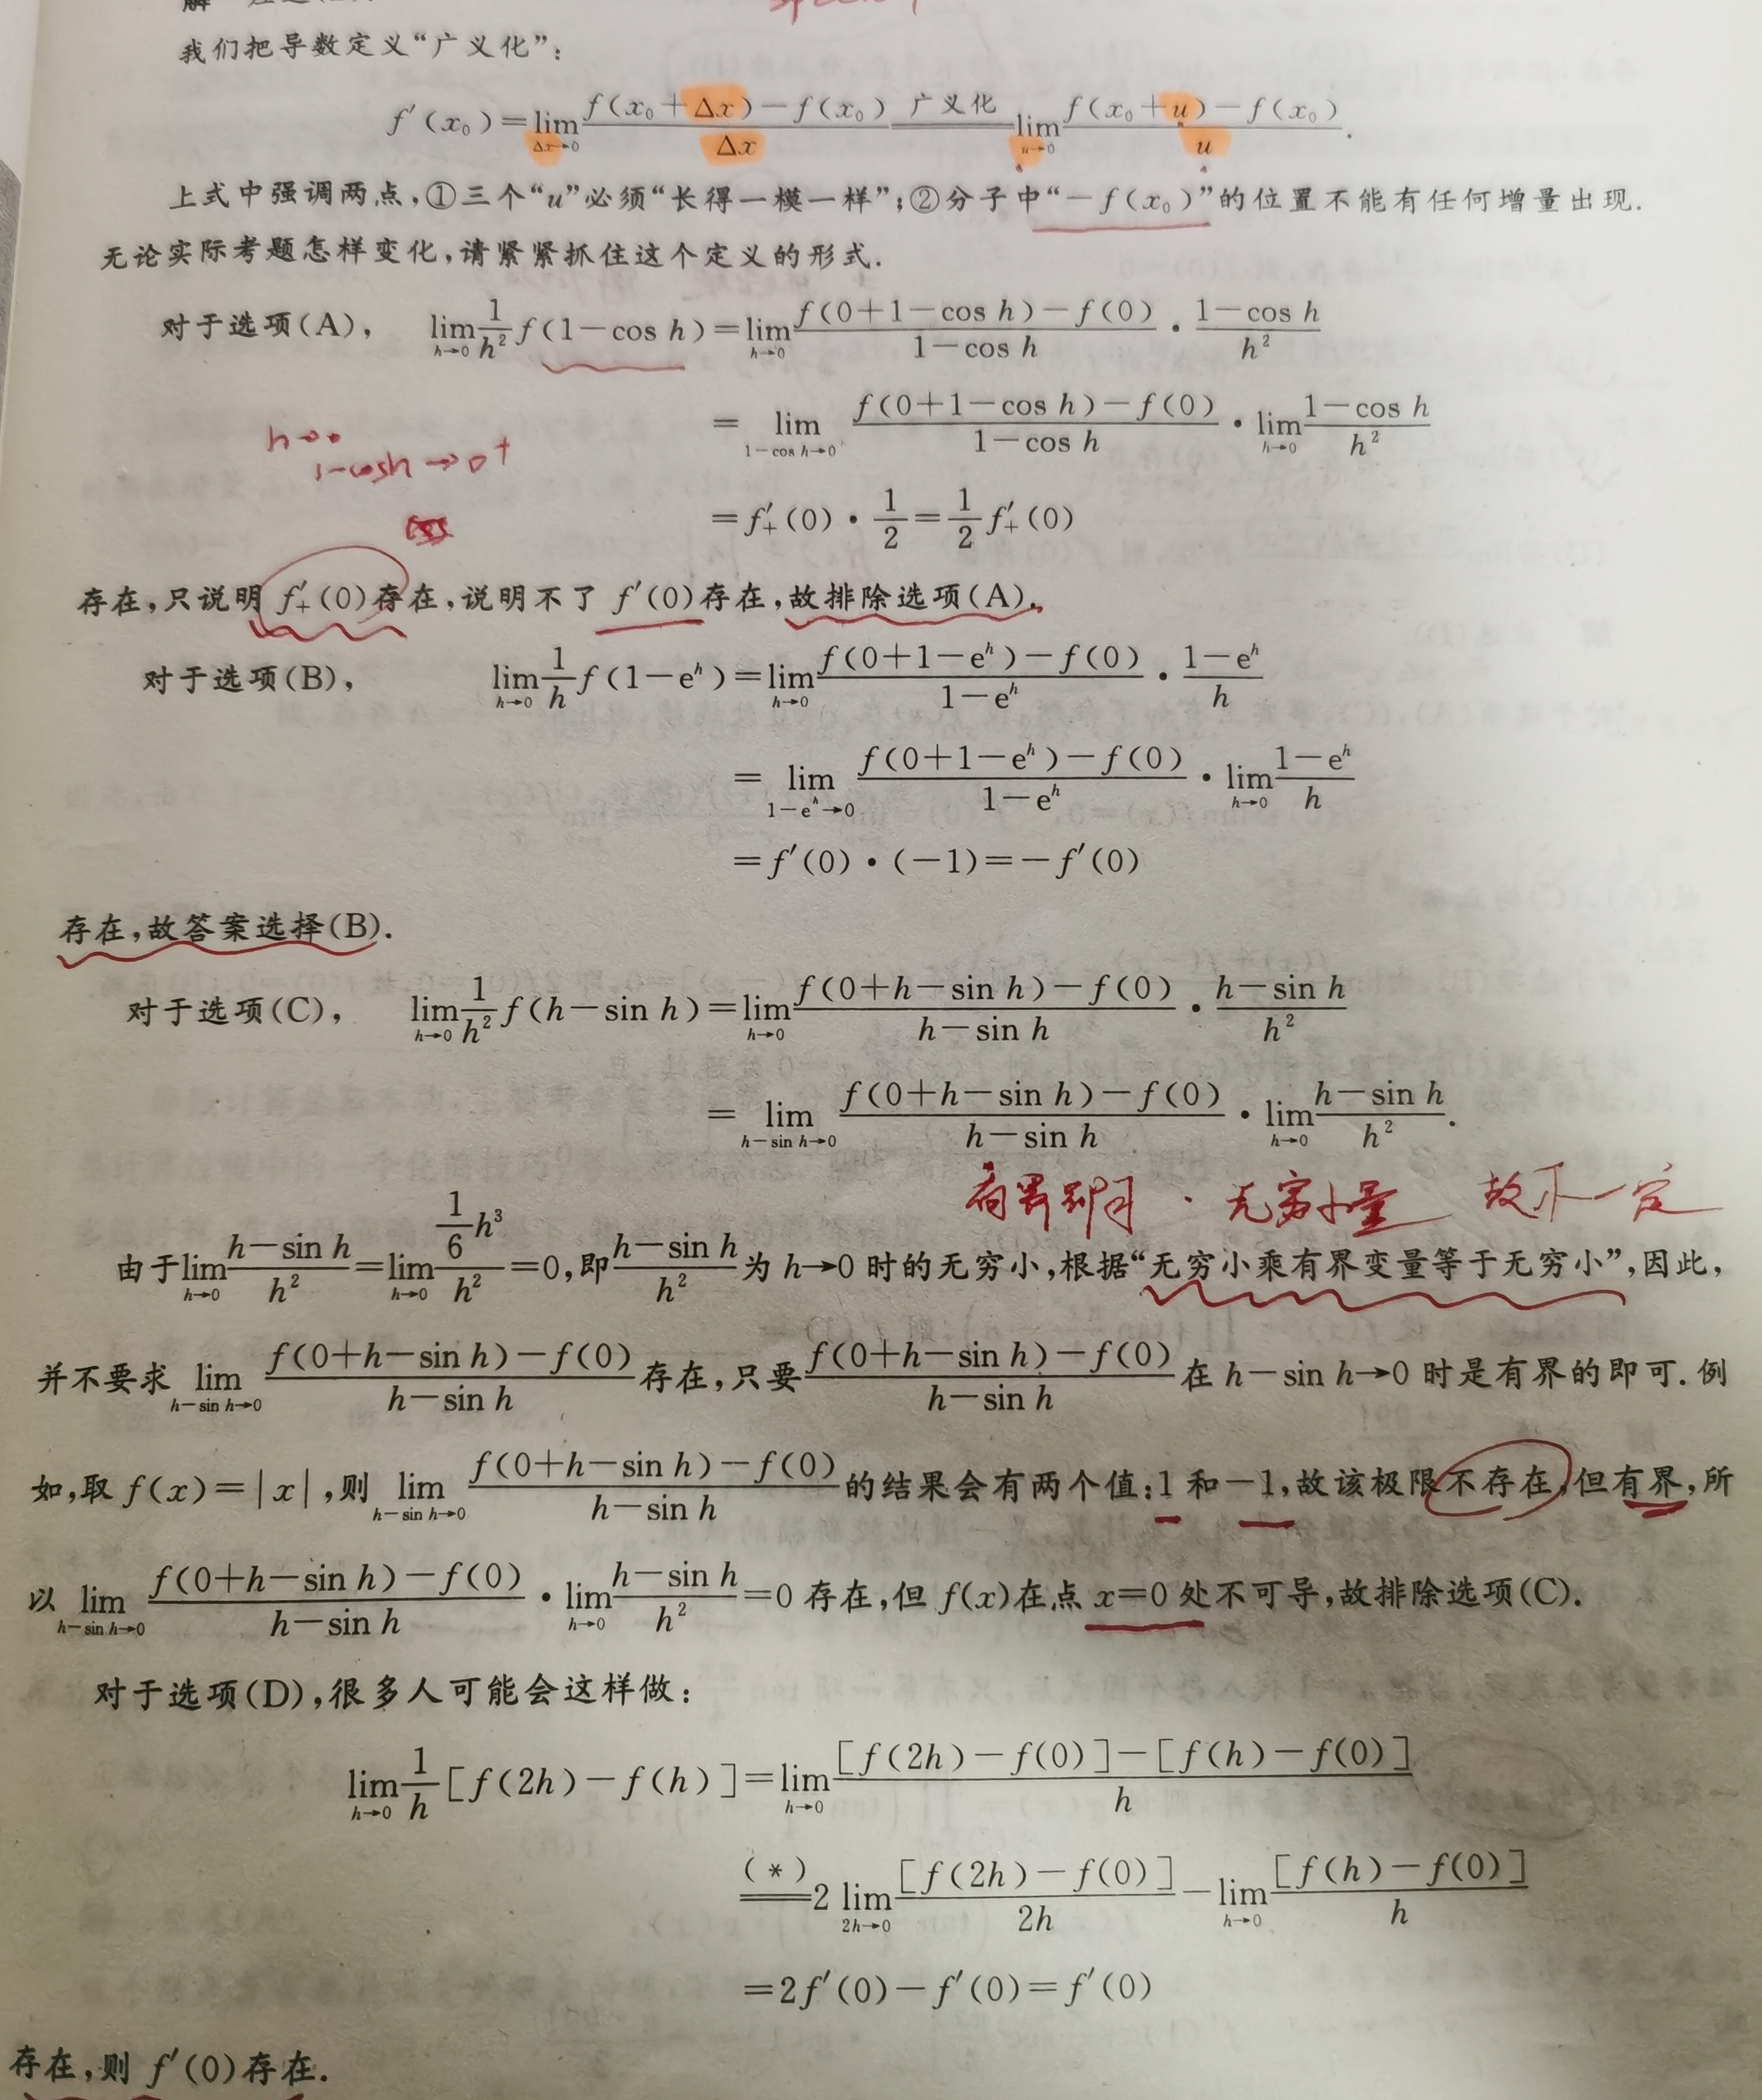 我们把导数定义“广义化”:
f′(x₀)=lim_{Δx→0} [f(x₀+Δx)-f(x₀)]/Δx ==广义化== lim_{u→0} [f(x₀+u)-f(x₀)]/u.
上式中强调两点,①三个“u”必须“长得一模一样”;②分子中“-f(x₀)”的位置不能有任何增量出现.
无论实际考题怎样变化,请紧紧抓住这个定义的形式.
对于选项(A), lim_{h→0} 1/h² f(1-cos h)=lim_{h→0} [f(0+1-cos h)-f(0)]/(1-cos h) · (1-cos h)/h²
= lim_{1-cos h→0} [f(0+1-cos h)-f(0)]/(1-cos h) · lim_{h→0} (1-cos h)/h²
h→0
1-cosh→0⁺
=f′₊(0)·1/2=1/2 f′₊(0)
存在,只说明 f′₊(0)存在,说明不了 f′(0)存在,故排除选项(A).
对于选项(B), lim_{h→0} 1/h f(1-eʰ)=lim_{h→0} [f(0+1-eʰ)-f(0)]/(1-eʰ) · (1-eʰ)/h
= lim_{1-eʰ→0} [f(0+1-eʰ)-f(0)]/(1-eʰ) · lim_{h→0} (1-eʰ)/h
=f′(0)·(-1)=-f′(0)
存在,故答案选择(B).
对于选项(C), lim_{h→0} 1/h² f(h-sin h)=lim_{h→0} [f(0+h-sin h)-f(0)]/(h-sin h) · (h-sin h)/h²
= lim_{h-sin h→0} [f(0+h-sin h)-f(0)]/(h-sin h) · lim_{h→0} (h-sin h)/h².
有界 · 无穷小量 故不一定
由于lim_{h→0} (h-sin h)/h²=lim_{h→0} (1/6 h³)/h²=0,即(h-sin h)/h²为 h→0 时的无穷小,根据“无穷小乘有界变量等于无穷小”,因此,
并不要求 lim_{h-sin h→0} [f(0+h-sin h)-f(0)]/(h-sin h) 存在,只要 [f(0+h-sin h)-f(0)]/(h-sin h) 在 h-sin h→0 时是有界的即可. 例
如,取 f(x)=|x|,则 lim_{h-sin h→0} [f(0+h-sin h)-f(0)]/(h-sin h) 的结果会有两个值:1 和-1,故该极限不存在,但有界,所
以 lim_{h-sin h→0} [f(0+h-sin h)-f(0)]/(h-sin h) · lim_{h→0} (h-sin h)/h²=0 存在,但 f(x)在点 x=0 处不可导,故排除选项(C).
对于选项(D),很多人可能会这样做:
lim_{h→0} 1/h [f(2h)-f(h)]=lim_{h→0} {[f(2h)-f(0)]-[f(h)-f(0)]}/h
==(*)== 2 lim_{2h→0} [f(2h)-f(0)]/2h - lim_{h→0} [f(h)-f(0)]/h
=2f′(0)-f′(0)=f′(0)
存在,则 f′(0)存在.